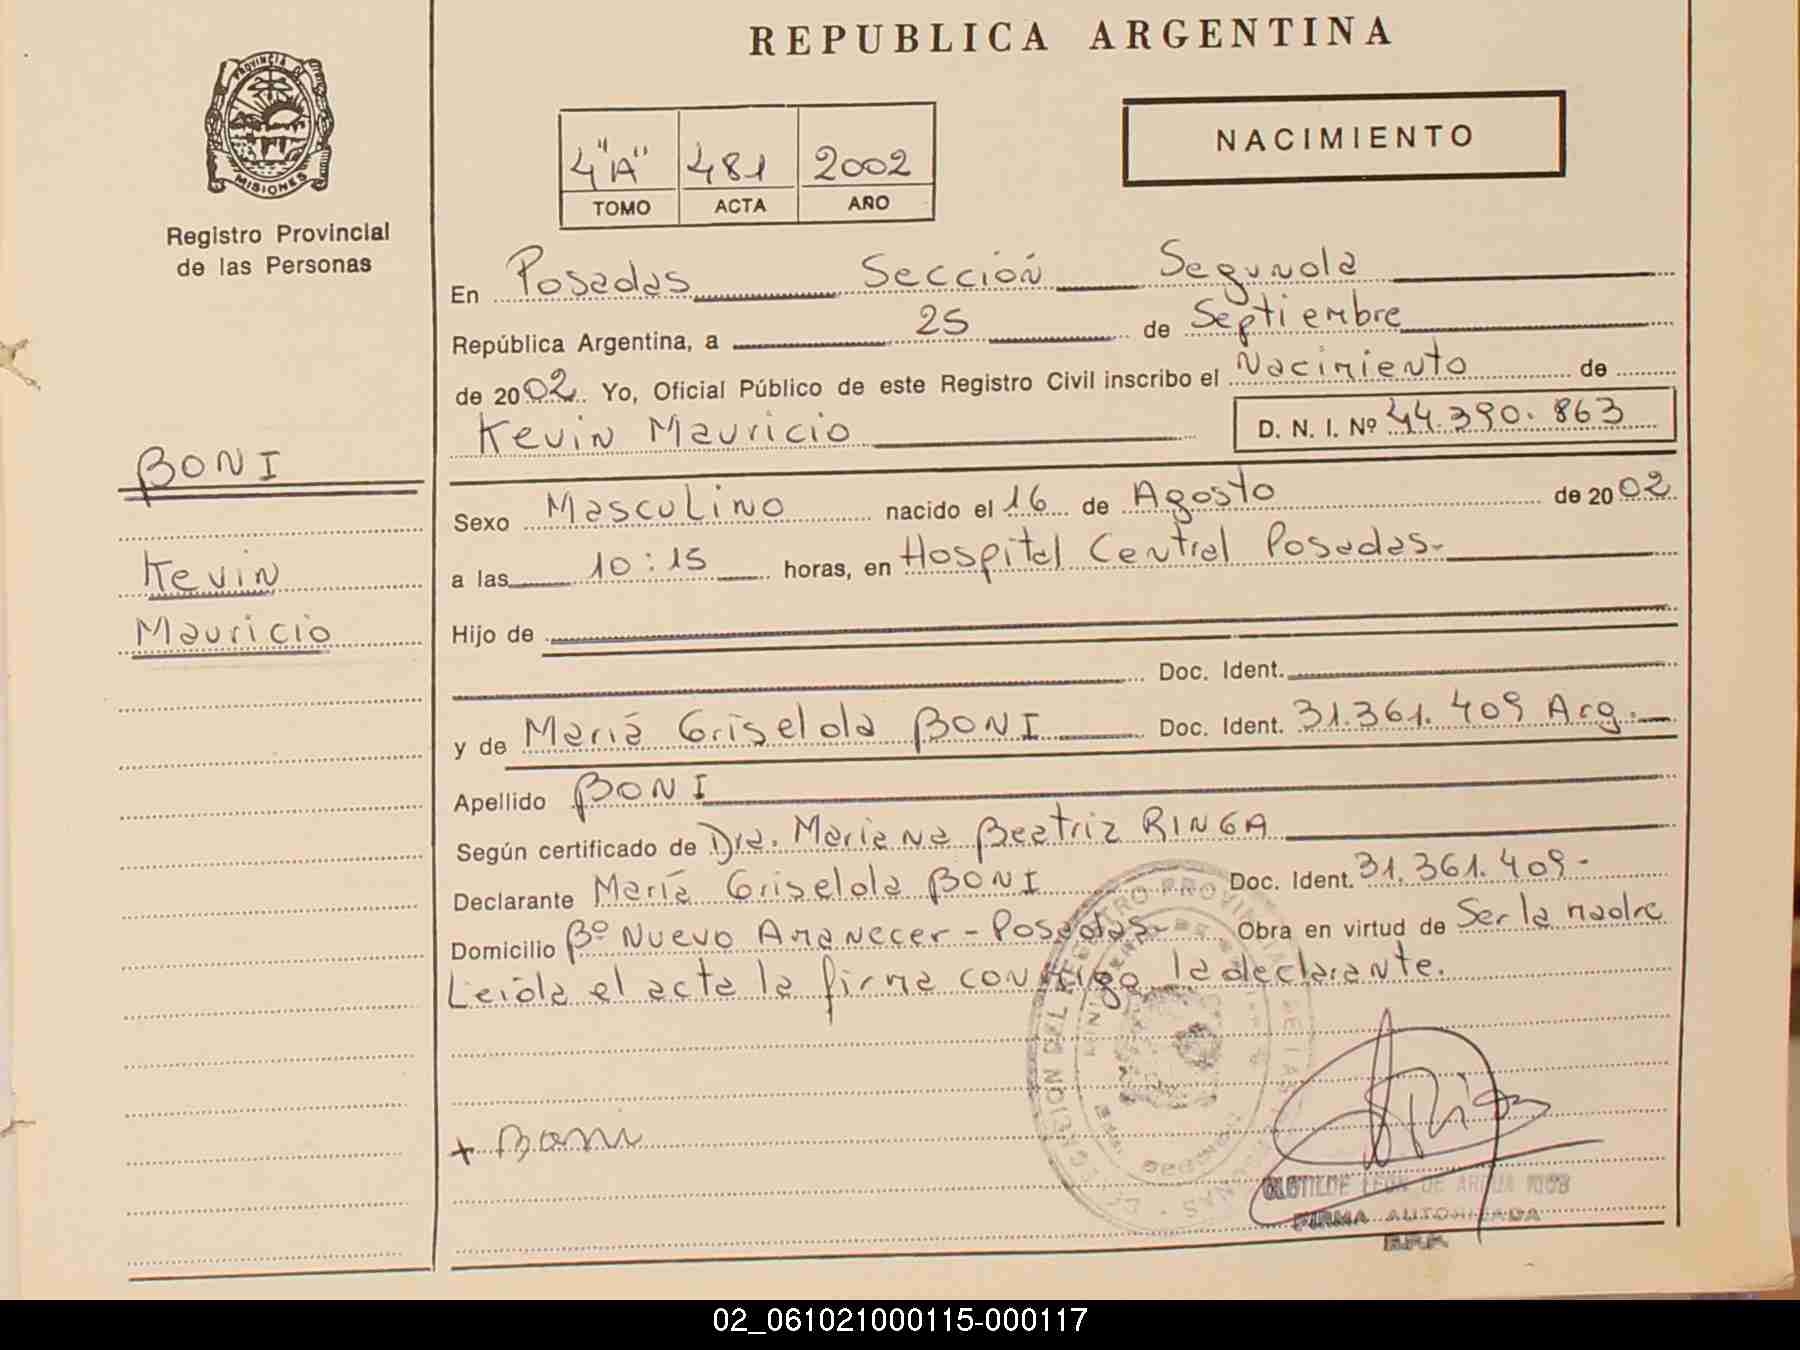 REPUBLICA ARGENTINA
PROVINCIA DE
MISIONES
Registro Provincial
de las Personas
4"A" 481 2002
TOMO ACTA AÑO
NACIMIENTO
En Posadas Sección Segunda
República Argentina, a 25 de Septiembre
de 2002 Yo, Oficial Público de este Registro Civil inscribo el Nacimiento de
Kevin Mauricio D. N. I. Nº 44.390.863
BONI
Kevin
Mauricio
Sexo Masculino nacido el 16 de Agosto de 2002
a las 10:15 horas, en Hospital Central Posadas-
Hijo de
Doc. Ident.
y de Mariá Griselda BONI Doc. Ident. 31.361.409 Arg.
Apellido BONI
Según certificado de Dra. Mariana Beatriz RINGA
Declarante María Griselda BONI Doc. Ident. 31.361.409-
Domicilio Bº Nuevo Amanecer - Posadas- Obra en virtud de Ser la madre
Leída el acta la firma conmigo la declarante.
+ Boni
CLOTILDE LEON DE
FIRMA AUTORIZADA
R.P.P.
02_061021000115-000117